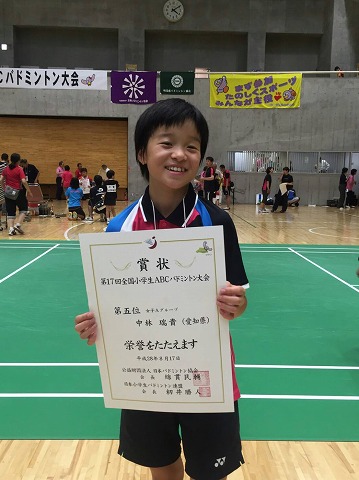 BCバドミントン大会
まず参加
たのしくスポーツ
みんなが主役
賞状
第17回全国小学生ABCバドミントン大会
第五位 女子Aグループ
中林 瑞貴(愛知県)
栄誉をたたえます
平成28年8月17日
公益財団法人 日本バドミントン協会
会長 綿貫民輔
日本小学生バドミントン連盟
会長 釼井勝人
YONEX